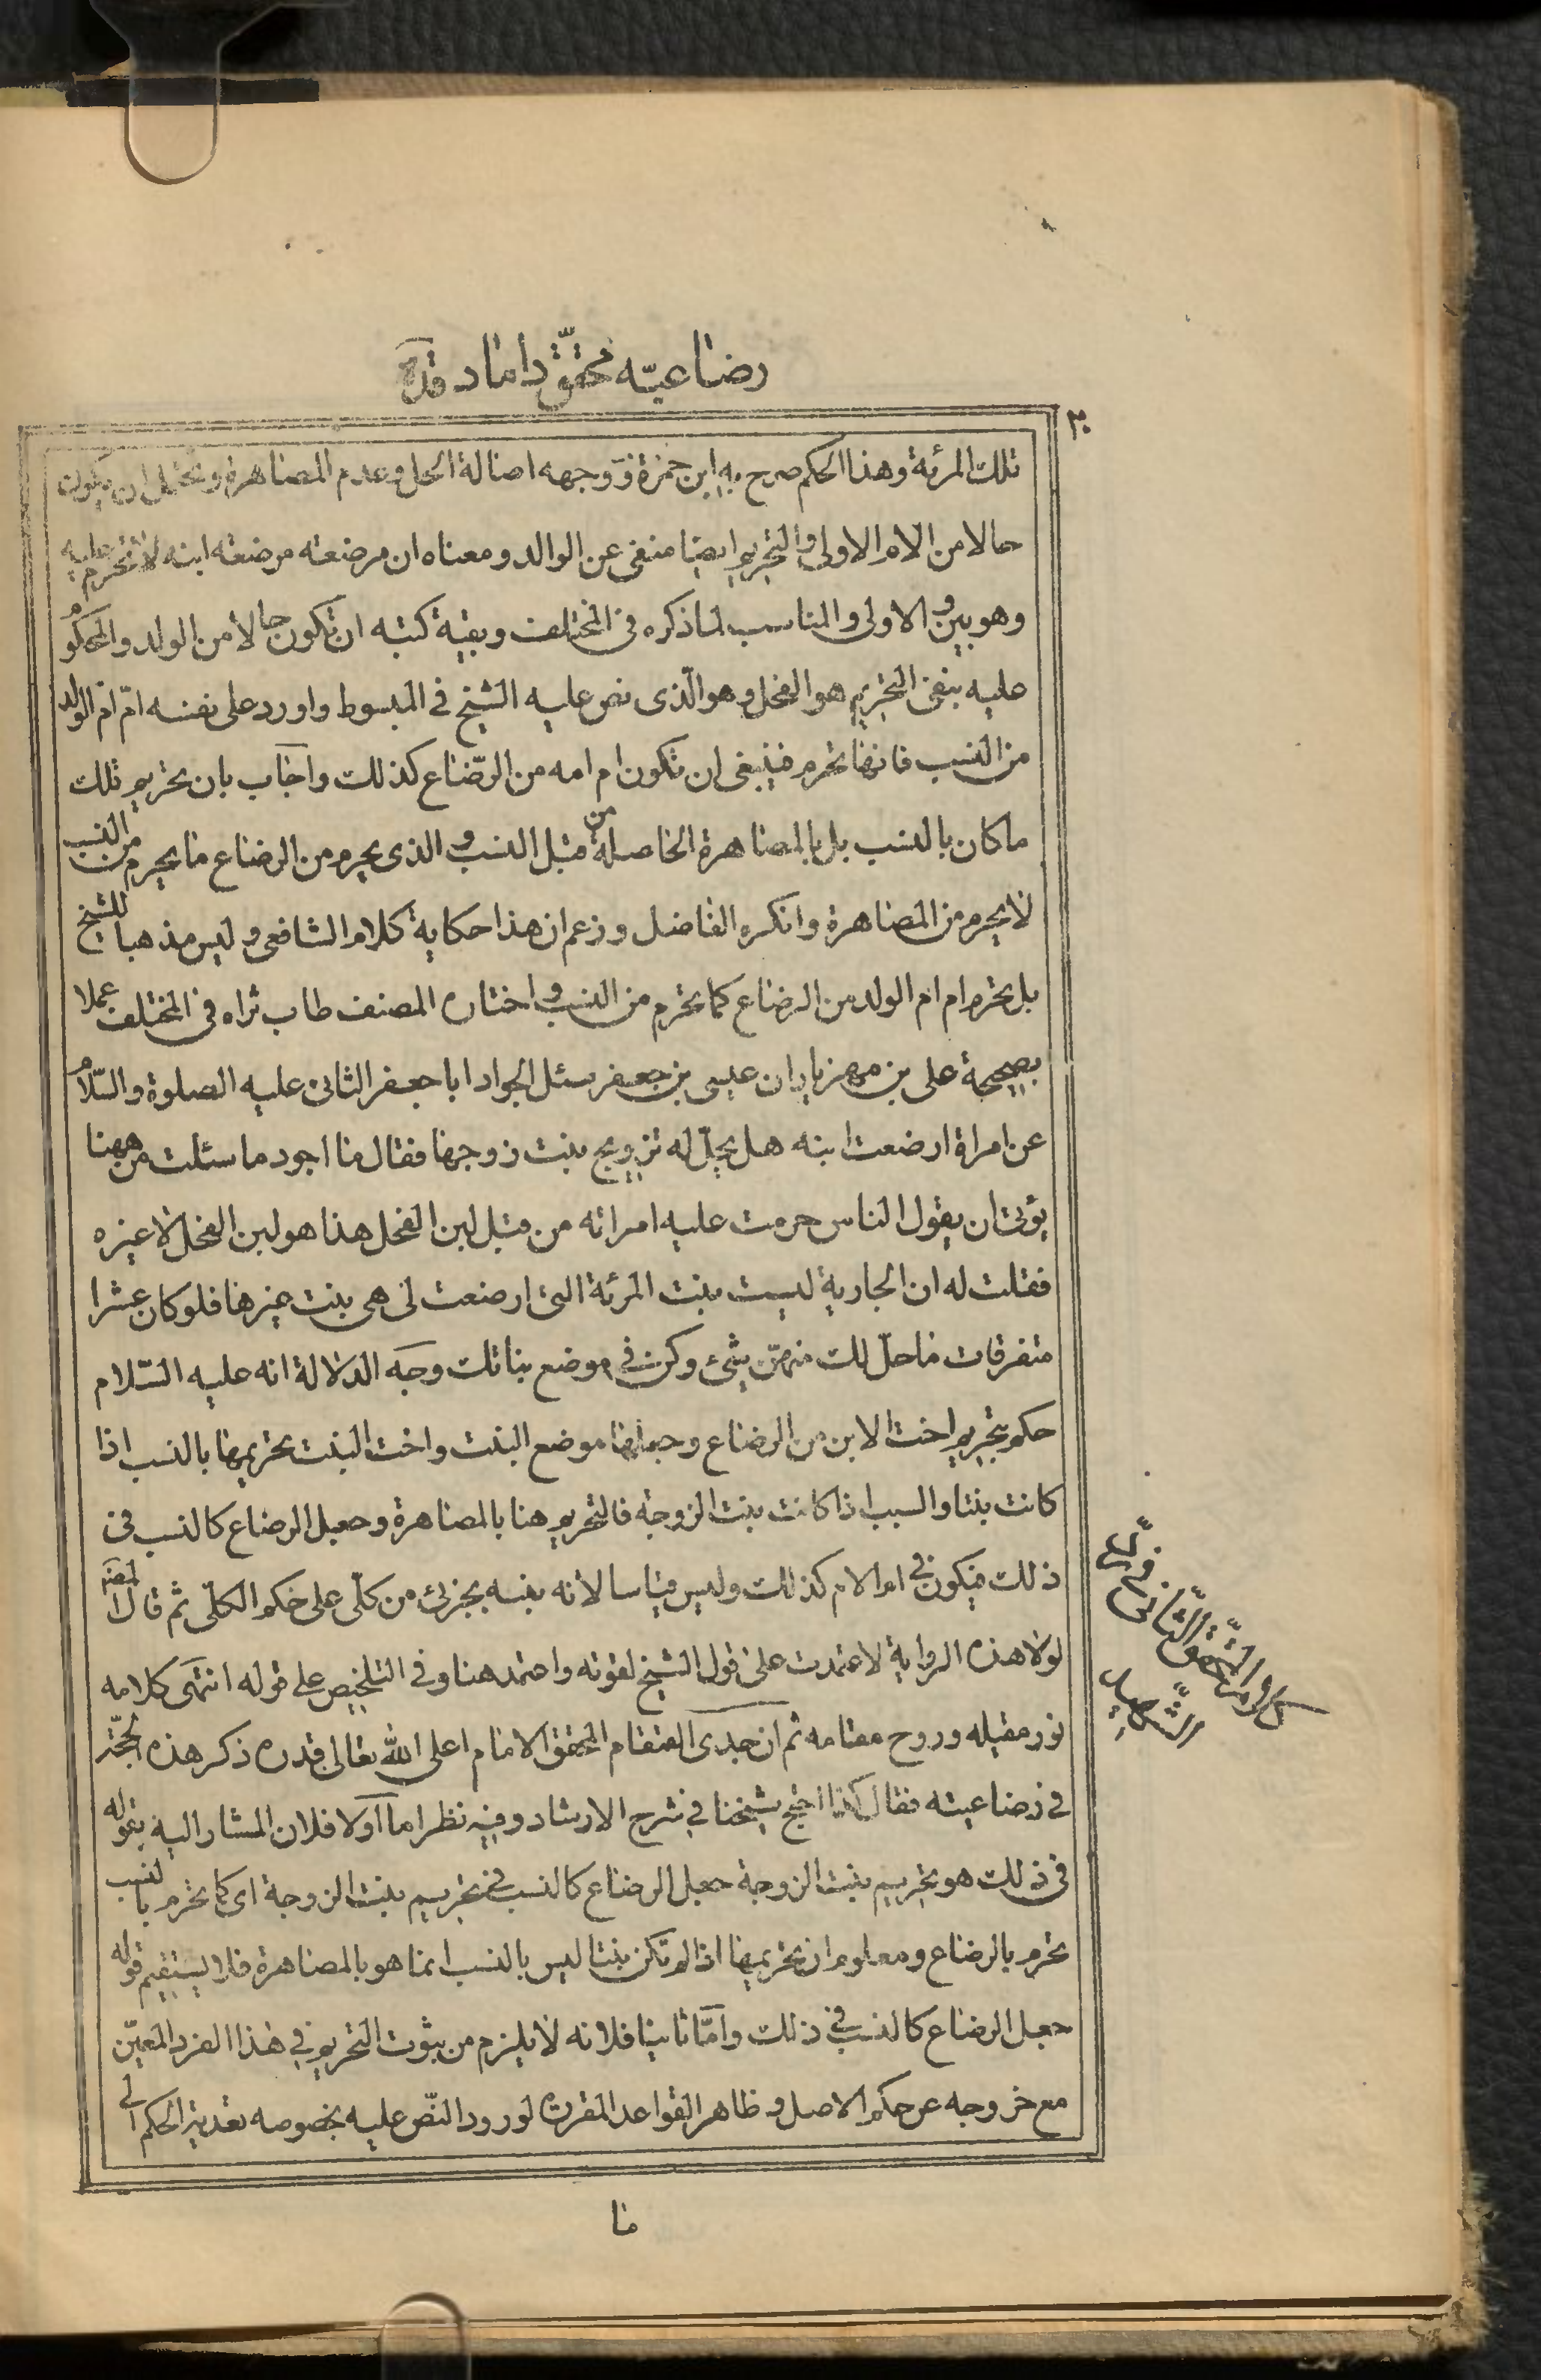 رضاعیّه محقّق داماد قده
٣٠
تلك المرئة وهذا الحكم صرح به ابن حمزة ووجهه اصالة الحل وعدم المصاهرة ويحتمل ان يكون
حالا من الام الاولى والتحريم ايضا منفى عن الوالد ومعناه ان مرضعته مرضعته ابنه لا تحرم عليه
وهو بيّن والاولى والمناسب لما ذكره فى المختلف وبقية كتبه ان تكون حالا من الولد والمحكوم
عليه بنفى التحريم هو الفحل وهو الّذى نص عليه الشيخ فى المبسوط واورد على نفسه امّ ام الولد
من النسب فانها تحرم فينبغى ان تكون ام امه من الرّضاع كذلك واجاب بان تحريم تلك
ما كان بالنسب بل بالمصاهرة الحاصلة من قبل النسب والذى يحرم من الرضاع ما يحرم من النسب
لا يحرم من المصاهرة وانكره الفاضل وزعم ان هذا حكاية كلام الشافعى وليس مذهبا للشيخ
بل تحرم ام ام الولد من الرضاع كما تحرم من النسب واختاره المصنف طاب ثراه فى المختلف عملا
بصحيحة على بن مهزيار ان عيسى بن جعفر سئل الجواد ابا جعفر الثانى عليه الصلوة والسّلام
عن امراة ارضعت ابنه هل يحلّ له تزويج بنت زوجها فقال ما اجود ما سئلت من ههنا
يؤتى ان يقول الناس حرمت عليه امراته من قبل لبن الفحل هذا هو لبن الفحل لا غيره
فقلت له ان الجارية ليست بنت المرئة التى ارضعت لى هى بنت غيرها فلو كان عشرا
متفرقات ما حلّ لك منهنّ شىء وكن فى موضع بناتك وجه الدلالة انه عليه السّلام
حكم بتحريم اخت الابن من الرضاع وجعلها موضع البنت واخت البنت تحريمها بالنسب اذا
كانت بنتا والسبب اذا كانت بنت الزوجة فالتحريم هنا بالمصاهرة وجعل الرضاع كالنسب فى
ذلك فيكون فى ام الام كذلك وليس قياسا لانه نبه بجزئى من كلّى على حكم الكلّى ثم قال المصنّ
لولا هذه الرواية لاعتمدت على قول الشيخ لقوته واعتمد هنا وفى التلخيص على قوله انتهى كلامه
نور مقيله وروح مقامه ثم ان جدى القمقام المحقق الامام اعلى الله تعالى قدره ذكر هذه الحجّة
فى رضاعيته فقال كذا احتج شيخنا فى شرح الارشاد وفيه نظر اما اولا فلان المشار اليه بقوله
فى ذلك هو تحريم بنت الزوجة جعل الرضاع كالنسب فى تحريم بنت الزوجة اى كما تحرم بالنسب
تحرم بالرضاع ومعلوم ان تحريمها اذا لم تكن بنتا ليس بالنسب انما هو بالمصاهرة فلا يستقيم قوله
جعل الرضاع كالنسب فى ذلك وامّا ثانيا فلانه لا يلزم من ثبوت التحريم فى هذا الفرد المعيّن
مع خروجه عن حكم الاصل وظاهر القواعد المقررة لورود النّص عليه بخصوصه تعدية الحكم الى
كلام المحقّق الثّانى فى ردّ
الشّهيد
ما